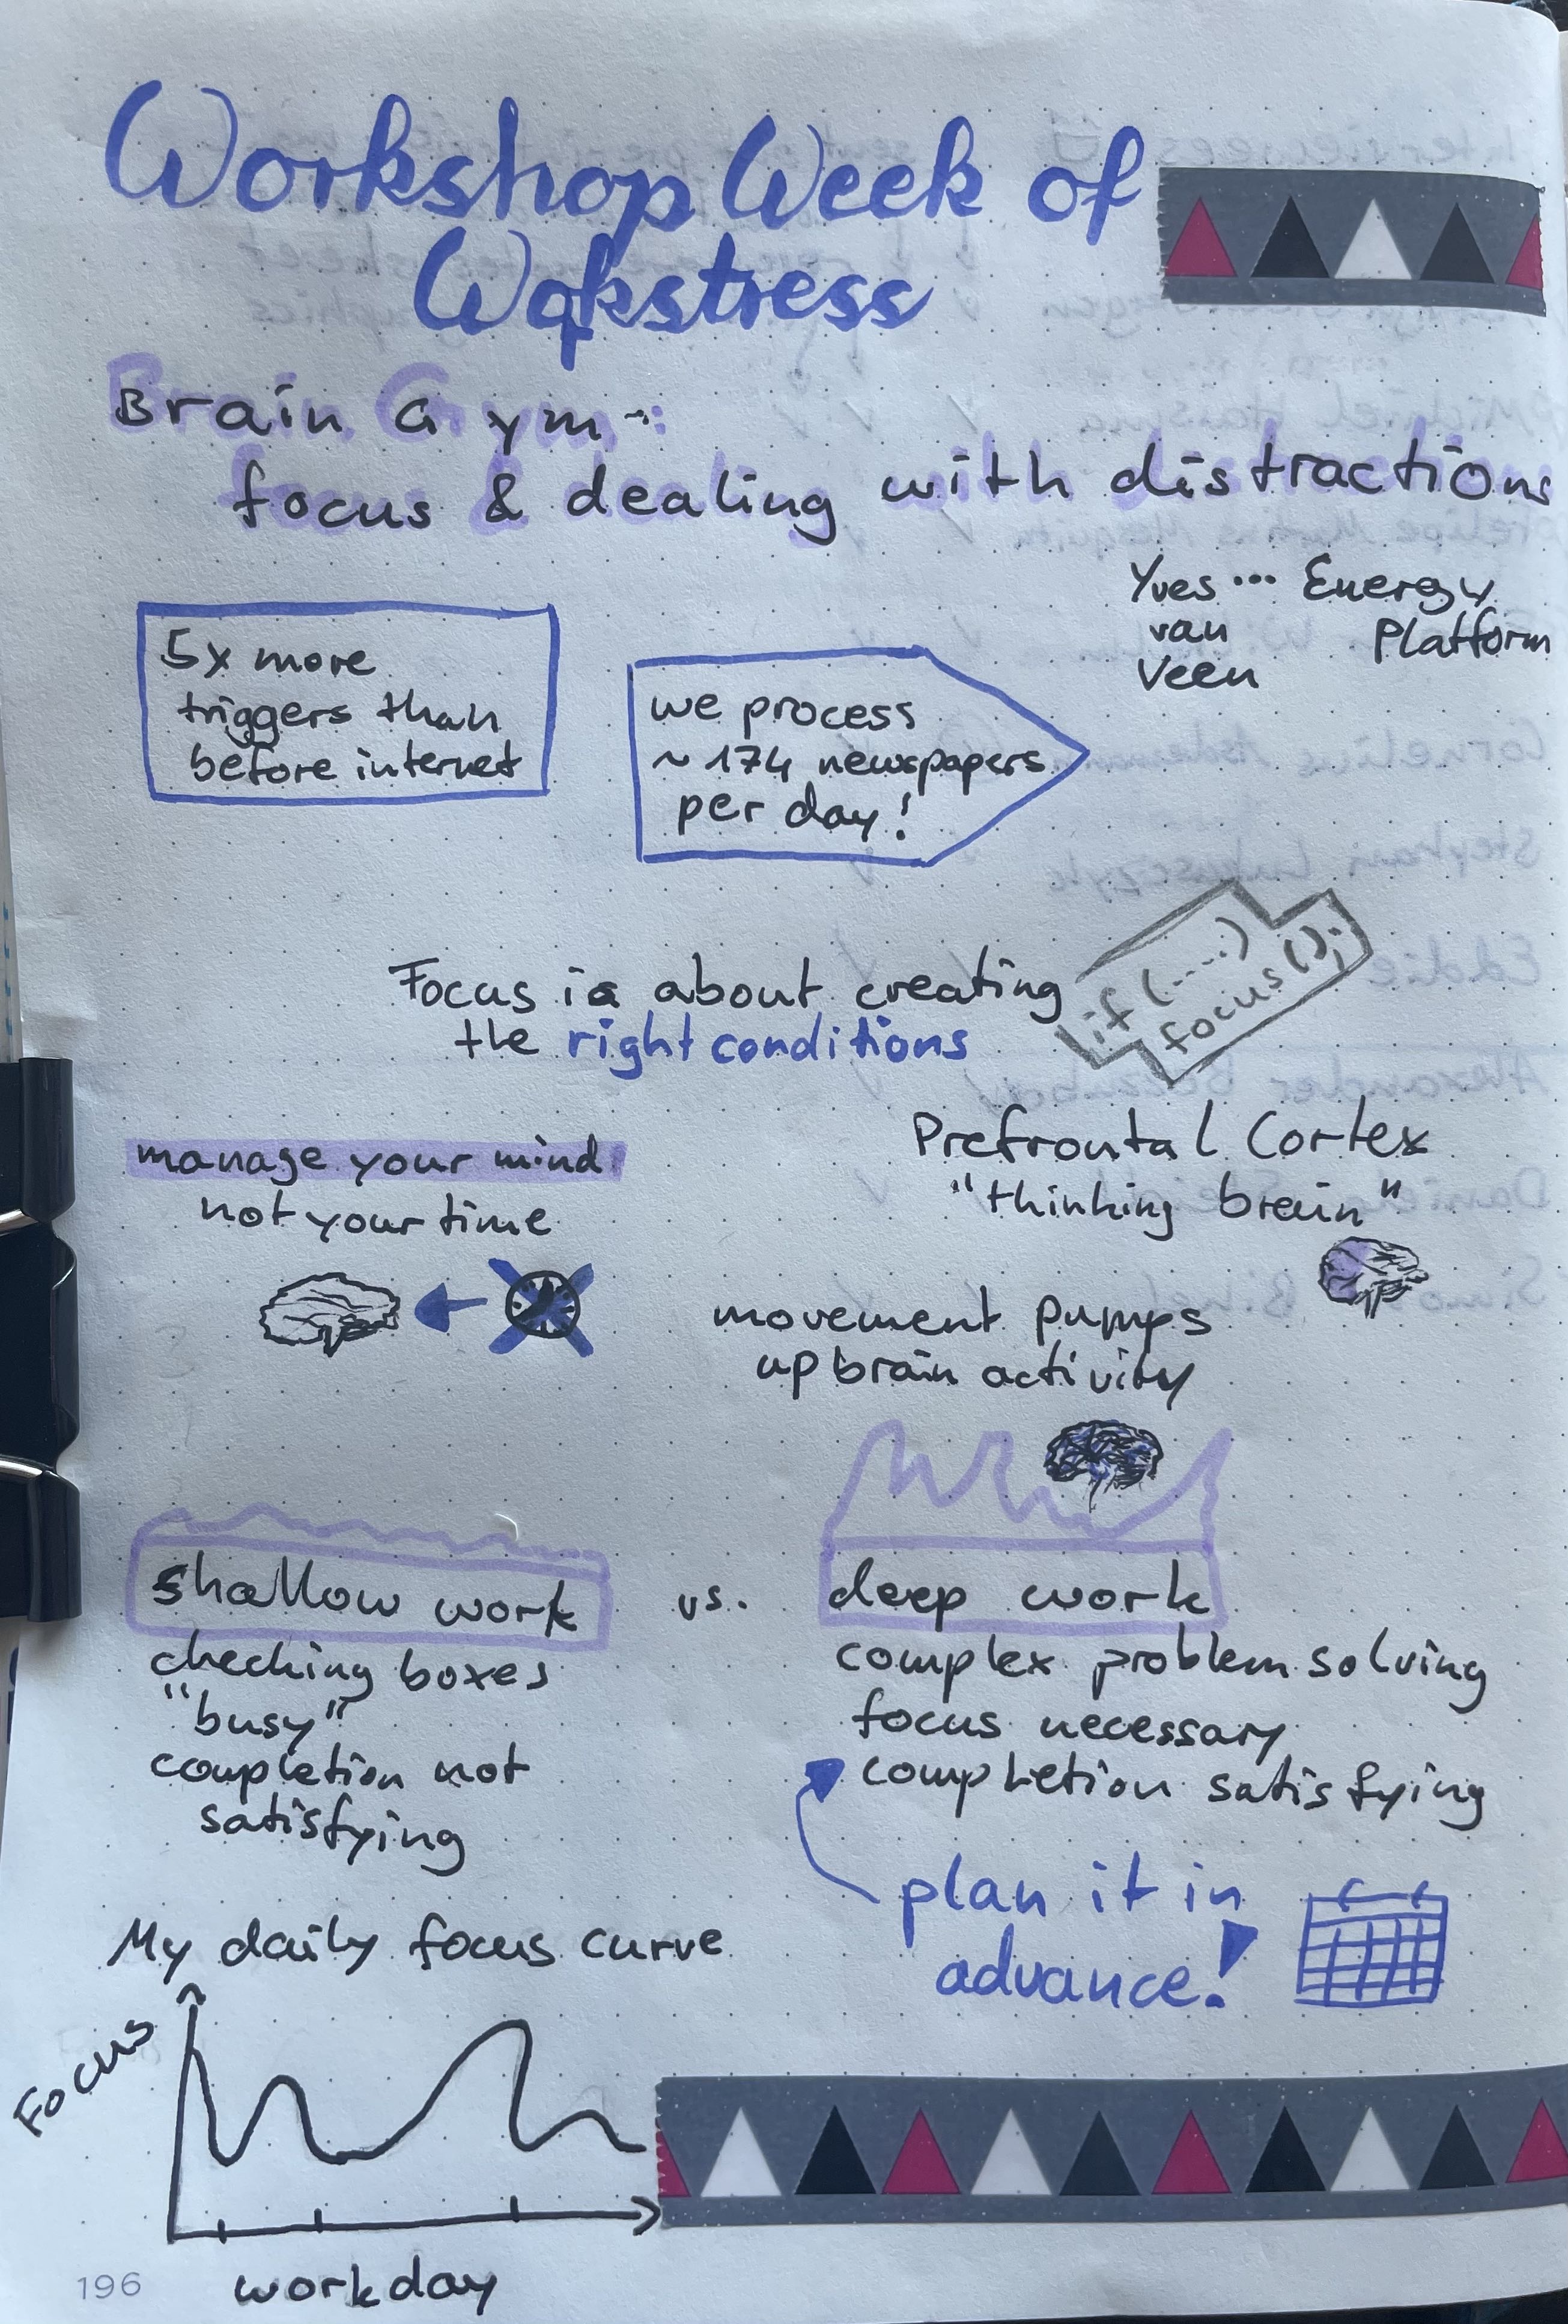 Workshop Week of
Workstress
Brain Gym:
focus & dealing with distractions
Yves ... Energy
van Platform
Veen
5x more
triggers than
before internet
we process
~ 174 newspapers
per day!
Focus is about creating
the right conditions
if (....)
focus();
manage your mind
not your time
Prefrontal Cortex
"thinking brain"
movement pumps
up brain activity
shallow work
checking boxes
"busy"
completion not
satisfying
vs.
deep work
complex problem solving
focus necessary
completion satisfying
plan it in
advance!
My daily focus curve
Focus
workday
196